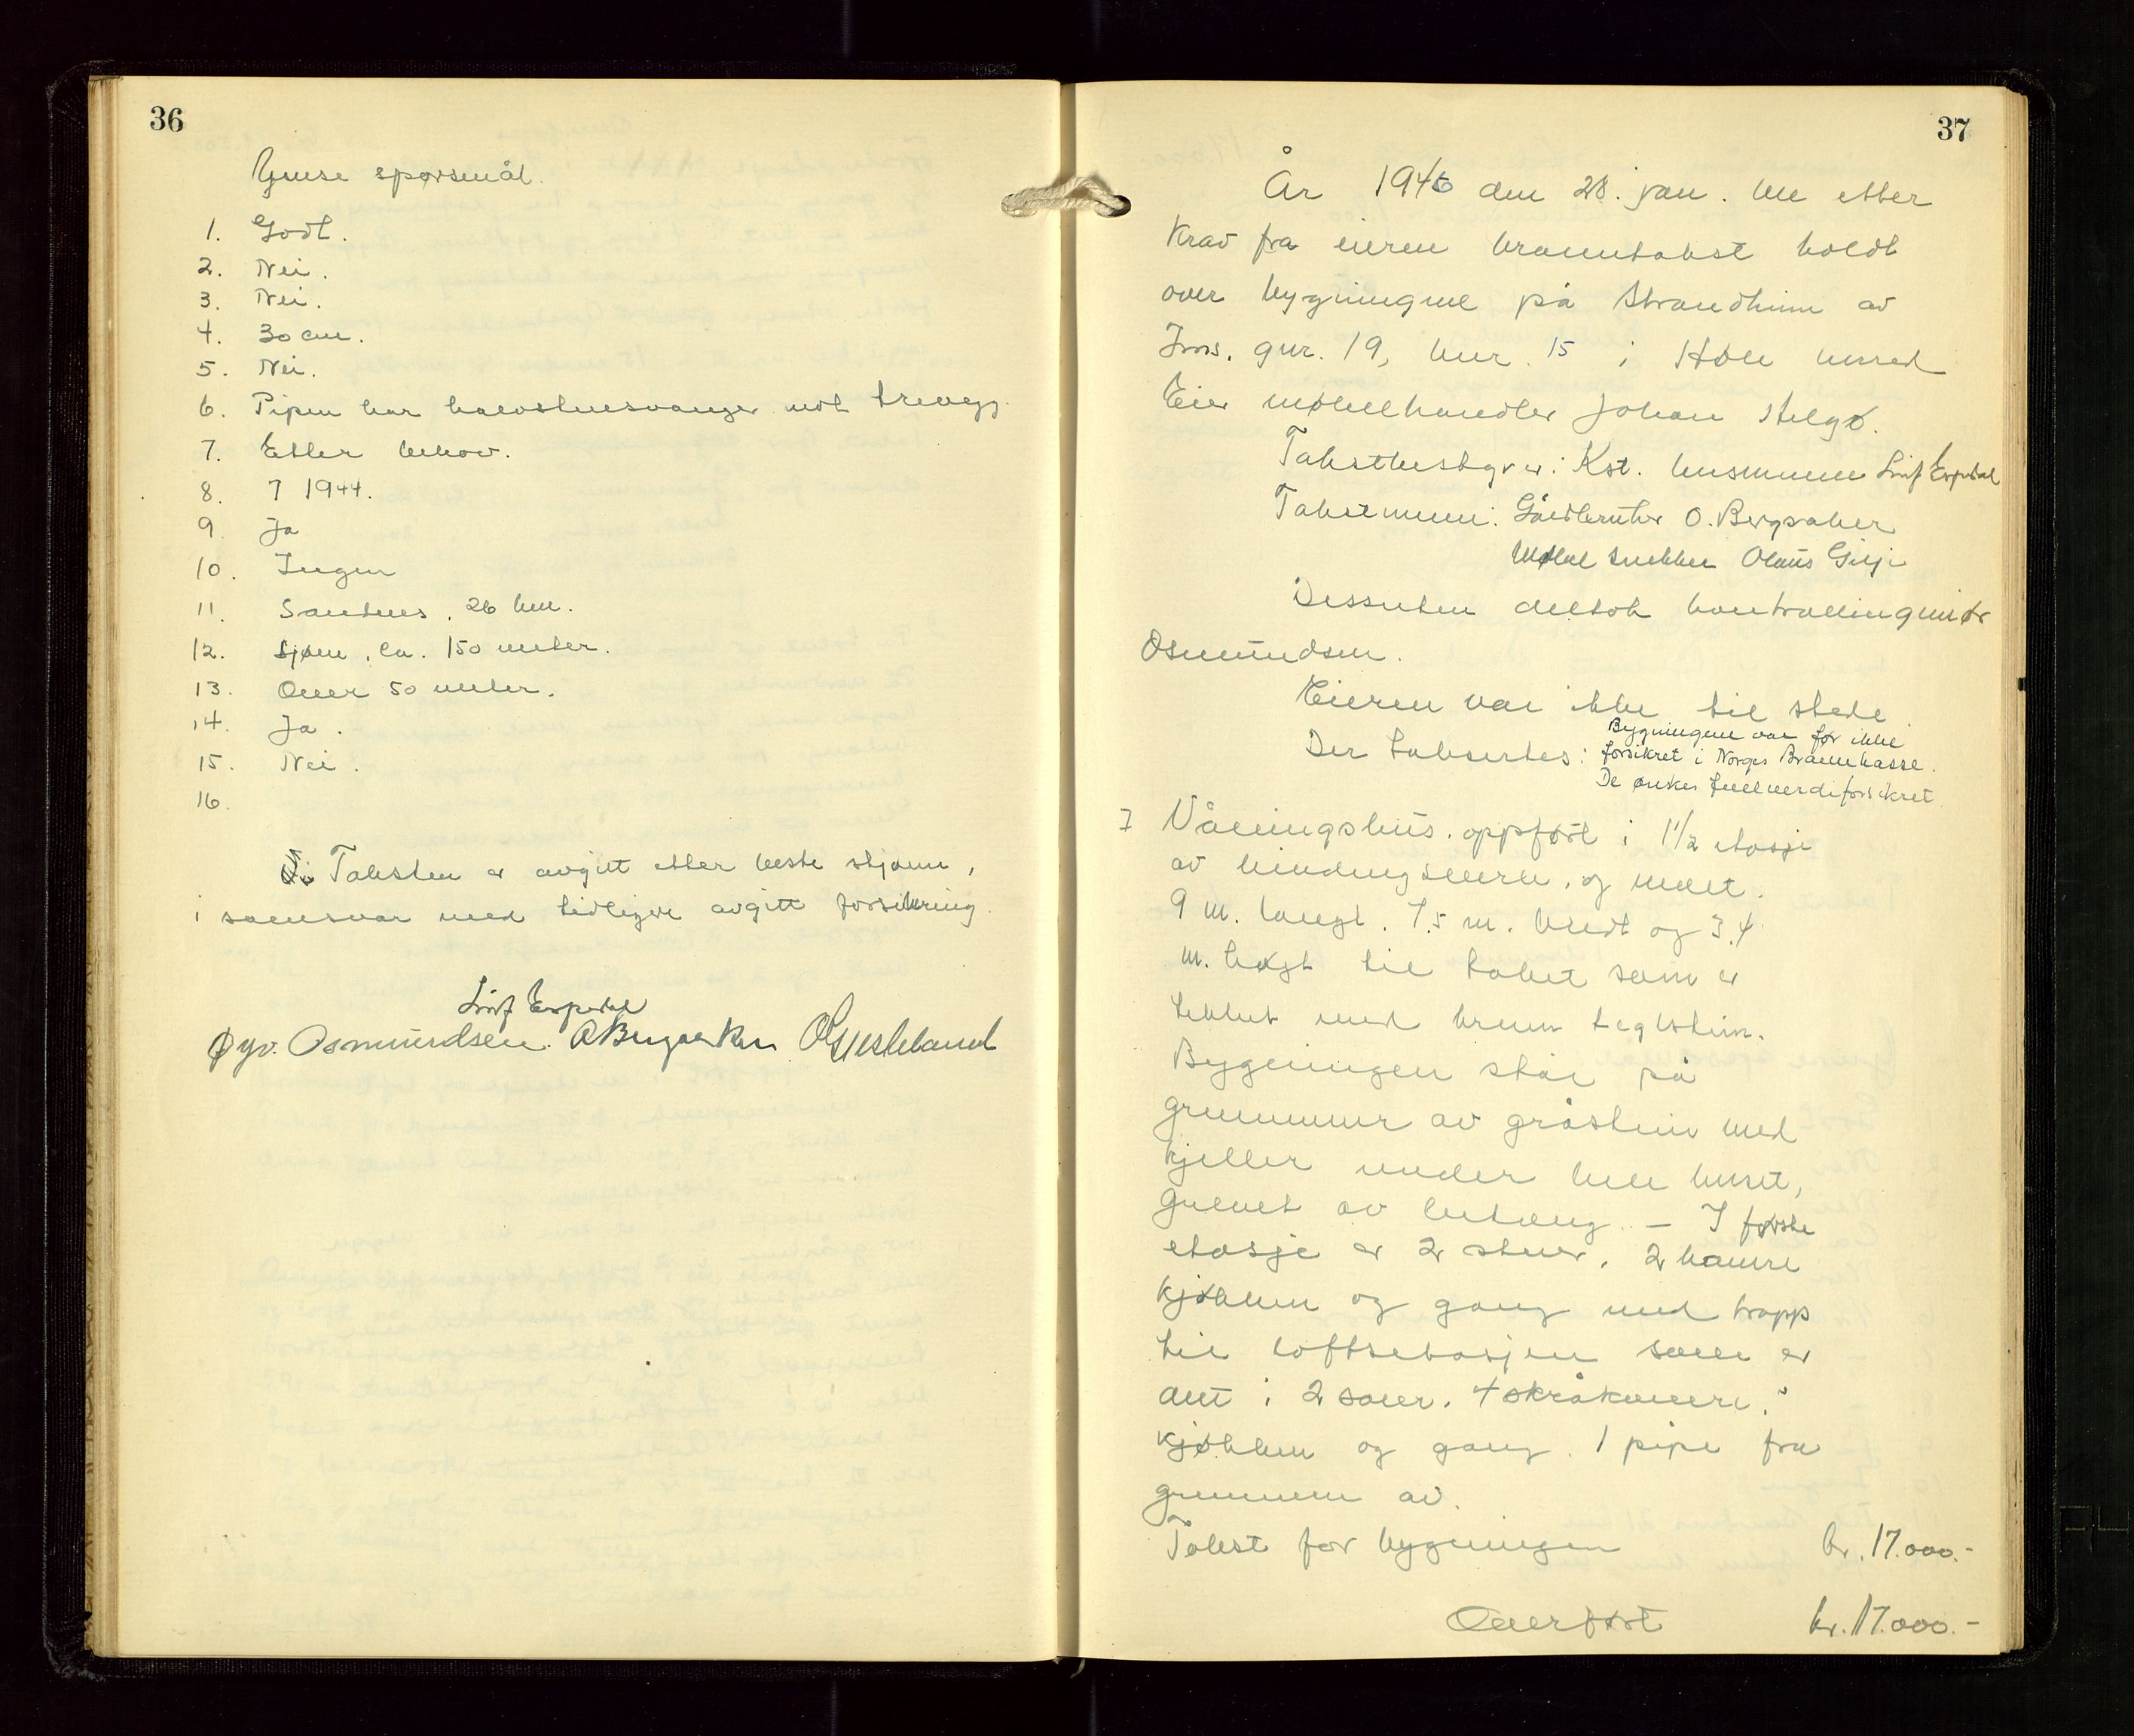 36
Ymse spørsmål.
1. Godt.
2. Nei.
3. Nei.
4. 30 cm.
5. Nei.
6. Pipen har halvstensvanger mot trevegg.
7. Etter behov.
8. 7 1944.
9. Ja
10. Ingen
11. Sandnes, 26 km.
12. Sjøen, ca. 150 meter.
13. Over 50 meter.
14. Ja.
15. Nei.
16.
Taksten er avgitt etter beste skjønn,
i samsvar med tidligere avgitt forsikring.
Leif Espedal
Øyv. Osmundsen. O Bergsaker O Gjesteland
37
År 1946 den 28. jan. ble etter
krav fra eieren branntakst holdt
over bygningene på Strandheim av
gnr. 19, bnr. 15 i Høle herred
Eier møbelhandler Johan Helgø.
Takstbestyrer: Kst. lensmann Leif Espedal
Takstmenn: Gårdbruker O. Bergsaker
Møbelsnekker Olaus Gilje
Dessuten deltok kontrollingeniør
Osmundsen.
Eieren var ikke til stede.
Der takseertes: Bygningene var før ikke
forsikret i Norges Brannkasse.
De ønskes fullverdiforsikret
I Våningshus. oppført i 1 1/2 etasje
av bindingsverk, og målt.
9 m. langt. 7.5 m. bredt og 3.4
m. høgt til taket som er
tekket med brent teglstein.
Bygningen står på
grunnmur av gråstein med
kjeller under hele huset,
gulvet av betong. – I første
etasje er 2 stuer, 2 kamre
kjøkken og gang med trapp
til loftsetasjen som er
delt i 2 saler. 4 skråkammere.
kjøkken og gang. 1 pipe fra
grunnen av.
Takst for bygningen kr. 17.000.-
Overført kr. 17.000.-